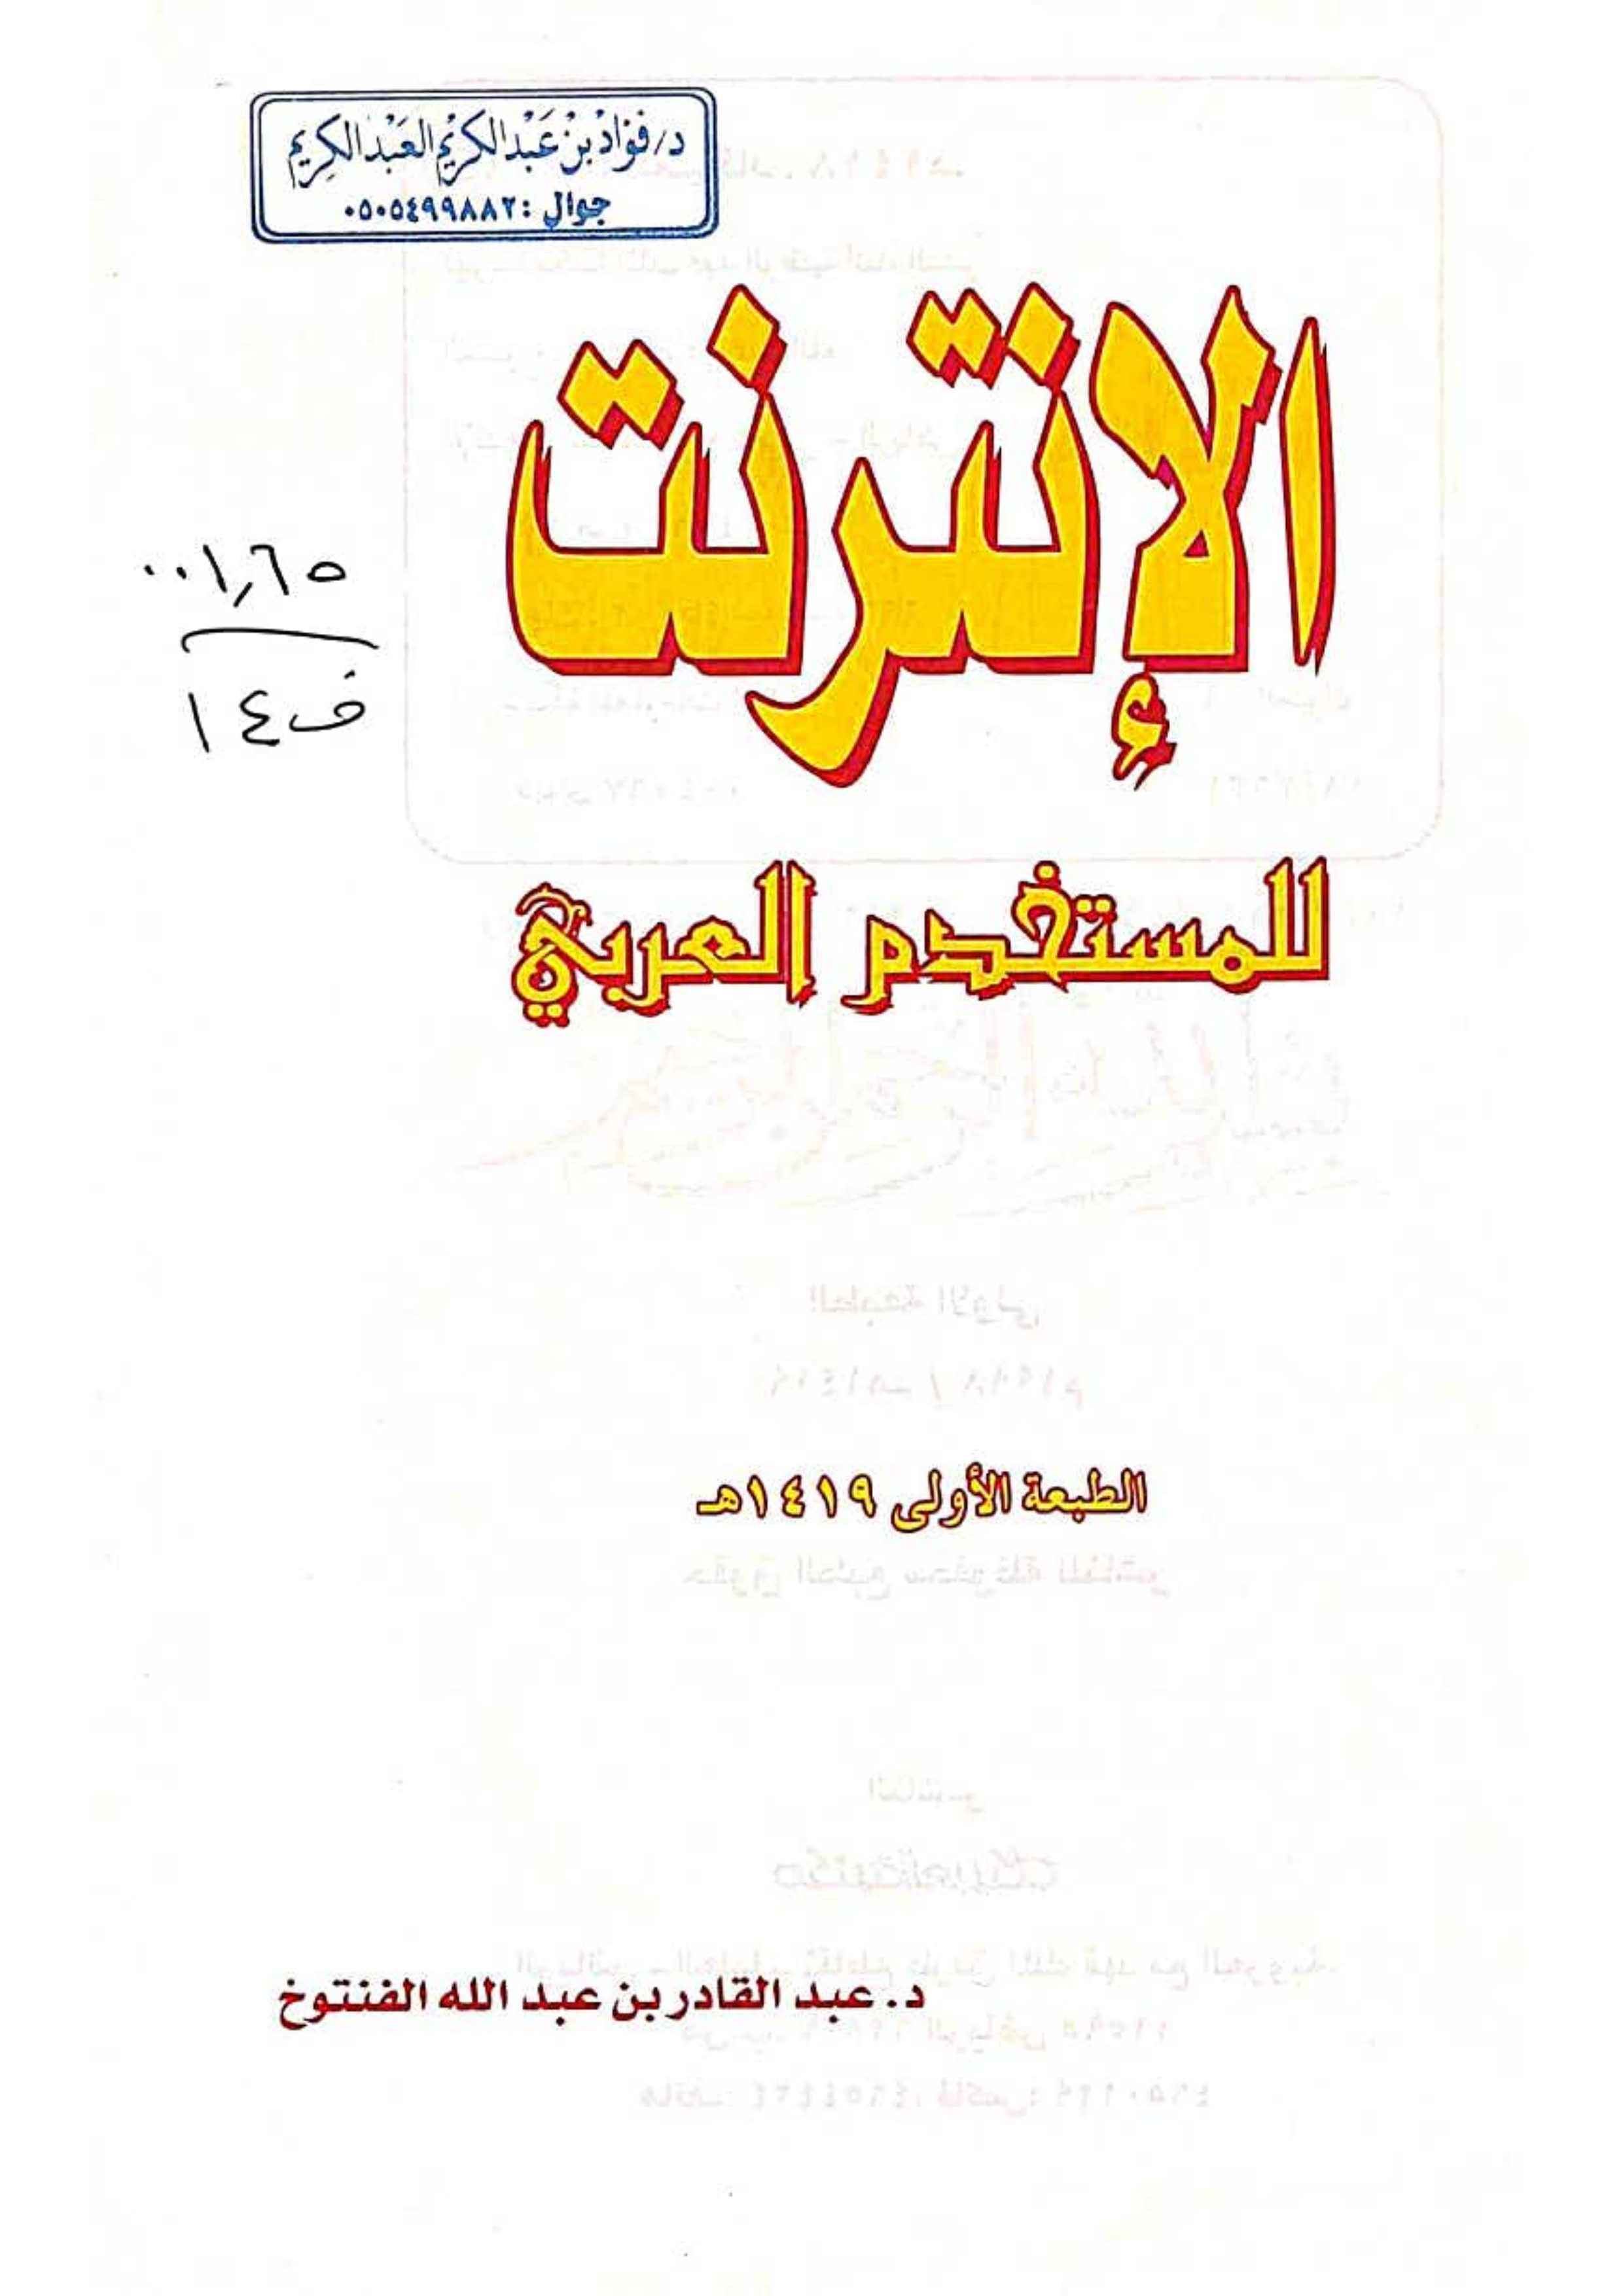 د/فؤاد بن عبد الكريم العبد الكريم
جوال : ٠٥٠٥٤٩٩٨٨٢
الإنترنت
٠٠١,٦٥
ف ١٤
للمستخدم العربي
الطبعة الأولى ١٤١٩هـ
د. عبد القادر بن عبد الله الفنتوخ